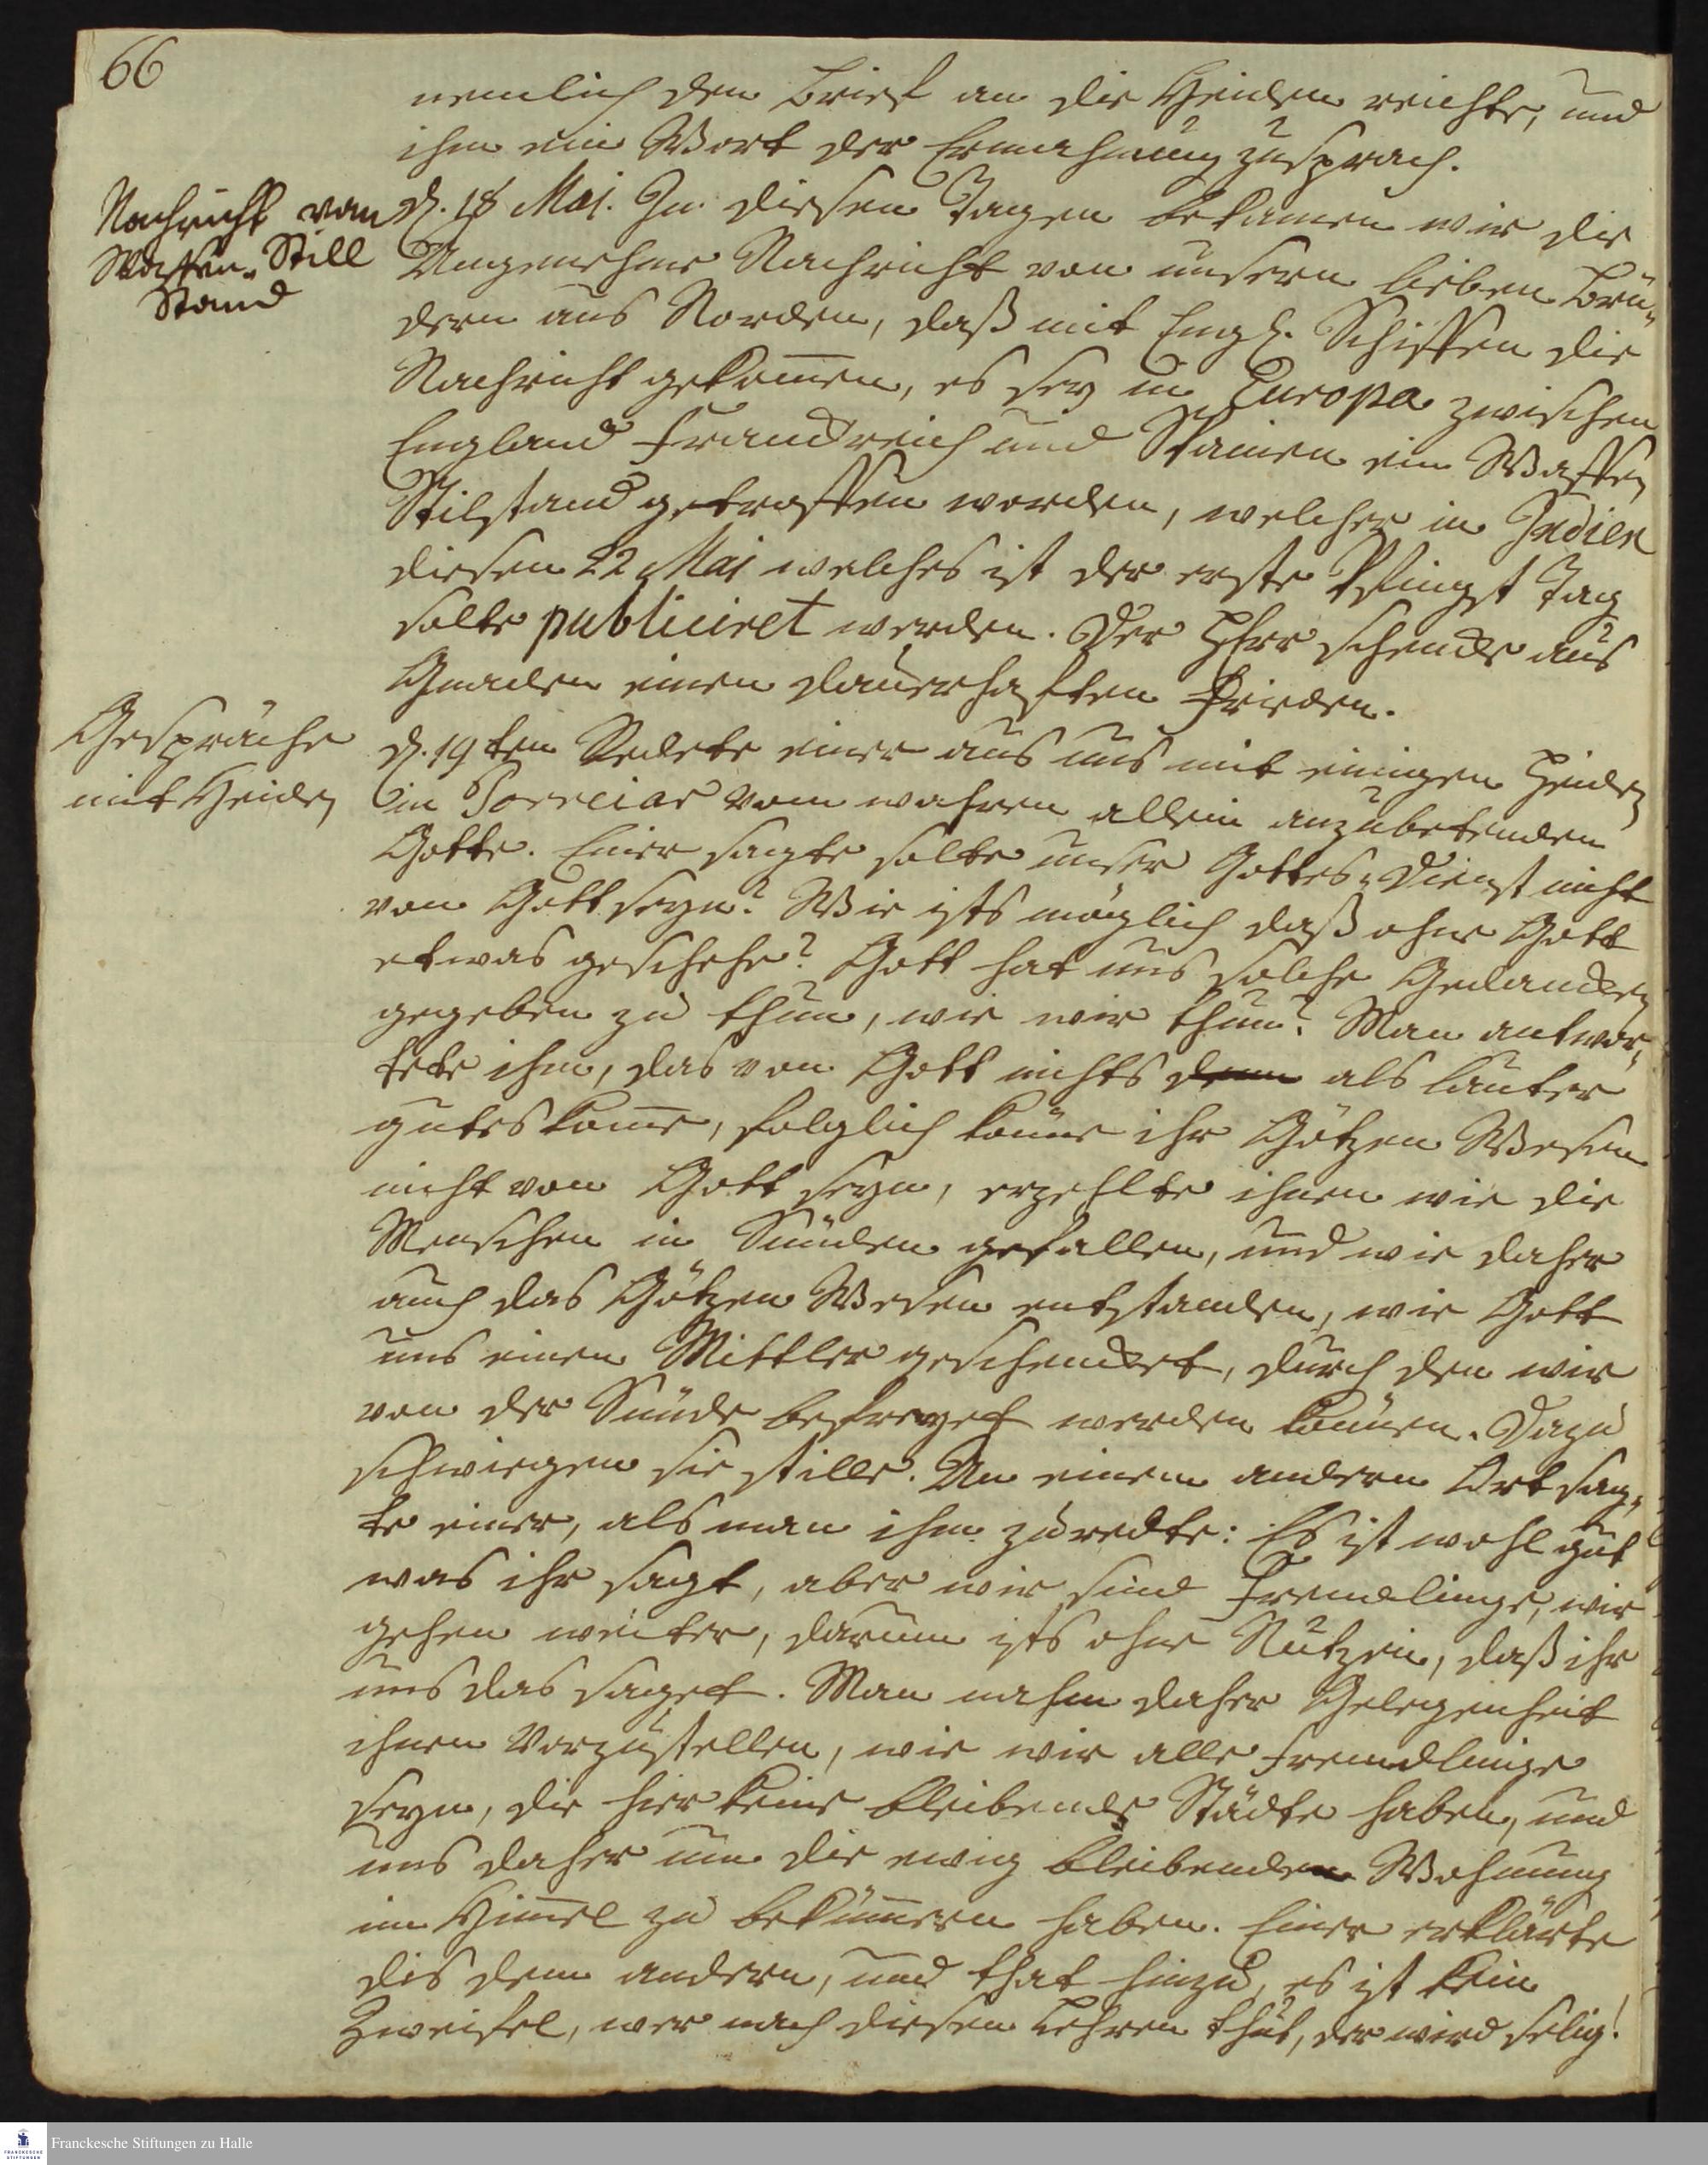 66
nemlich den Brief an die Heiden reichte, und
ihm ein Wort der Ermahnung zusprach.
Nachricht von
Waffen-Still
Stand
d. 18 Mai. In diesen Tagen bekamen wir die
Angenehme Nachricht von unsern lieben Brü-
dern aus Norden, daß mit Engl. Schiffen die
Nachricht gekom̅en, es sey in Europa zwischen
England Franckreich und Spanien ein Waffen
Stilstand getroffen worden, welcher in Indien
diesen 22 Mai welches ist der erste Pfingst Tag
solte publiciret werden. Der HErr schencke aus
Gnaden einen dauerhaften Frieden.
Gespräche
mit Heiden
d. 19ten Redete einer aus uns mit einigen Heiden
in Porreiar vom wahren allein anzubetenden
Gotte. Einer sagte solte unser Gottes-Dienst nicht
von Gott seyn? Wie ists möglich daß ohne Gott
etwas geschehe? Gott hat uns solche Gedancken
gegeben zu thun, wie wir thun? Man antwor-
tete ihm, das von Gott nichts denn als lauter
gutes kom̅e, folglich könne ihr Götzen Wesen
nicht von Gott seyn, erzehlte ihnen wie die
Menschen in Sünden gefallen, und wie daher
auch das Götzen Wesen entstanden, wie Gott
uns einen Mittler geschencket, durch den wir
von der Sünde befreyet werden können. Dazu
schwiegen sie stille. An einem andern Ort sag-
te einer, als man ihm zuredte: Es ist wohl gut
was ihr sagt, aber wir sind Fremdlinge, wir
gehen weiter, darum ists ohne Nutzen, daß ihr
uns das saget. Man nahm daher Gelegenheit
ihnen Vorzustellen, wie wir alle Fremdlinge
seyn, die hier keine bleibende Städte haben, und
uns daher um die ewig bleibenden Wohnung
im Him̅el zu beküm̅ern haben. Einer erklärte
dis dem andern, und that hinzu, es ist kein
Zweifel, wer nach diesen Lehren thut, der wird selig!
Franckesche Stiftungen zu Halle
FRANCKESCHE
STIFTUNGEN